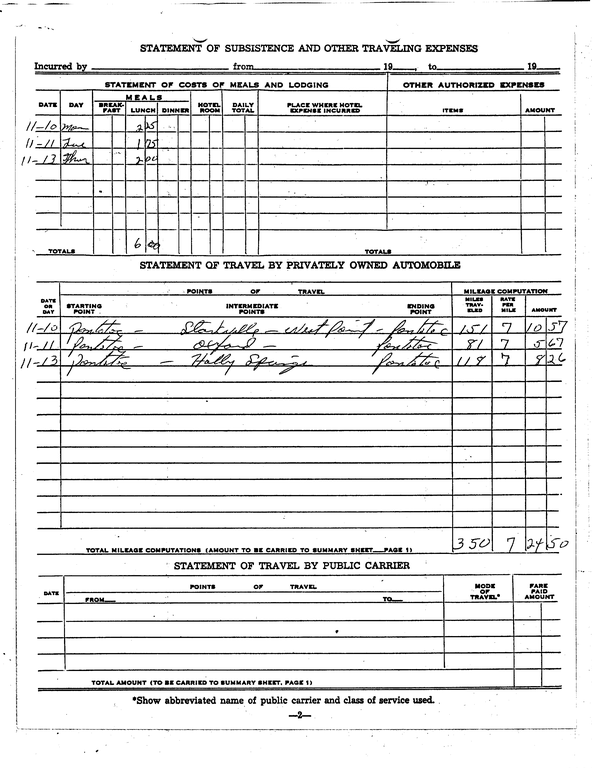 STATEMENT OF SUBSISTENCE AND OTHER TRAVELING EXPENSES
Incurred by from 19 , to 19
STATEMENT OF COSTS OF MEALS AND LODGING OTHER AUTHORIZED EXPENSES
DATE DAY MEALS BREAK-FAST LUNCH DINNER HOTEL ROOM DAILY TOTAL PLACE WHERE HOTEL EXPENSE INCURRED ITEMS AMOUNT
11-10 Mon 2 25
11-11 Tue 1 75
11-13 Thur 2 00
6 00
TOTALS TOTALS
STATEMENT OF TRAVEL BY PRIVATELY OWNED AUTOMOBILE
POINTS OF TRAVEL MILEAGE COMPUTATION
DATE OR DAY STARTING POINT INTERMEDIATE POINTS ENDING POINT MILES TRAV-ELED RATE PER MILE AMOUNT
11-10 Pontotoc - Starkville - West Point - Pontotoc 151 7 10 57
11-11 Pontotoc - Oxford - Pontotoc 81 7 5 67
11-13 Pontotoc - Holly Springs Pontotoc 118 7 8 26
TOTAL MILEAGE COMPUTATIONS (AMOUNT TO BE CARRIED TO SUMMARY SHEET—PAGE 1) 350 7 24 50
STATEMENT OF TRAVEL BY PUBLIC CARRIER
DATE POINTS OF TRAVEL MODE OF TRAVEL* FARE PAID AMOUNT
FROM— TO—
TOTAL AMOUNT (TO BE CARRIED TO SUMMARY SHEET, PAGE 1)
*Show abbreviated name of public carrier and class of service used.
—2—